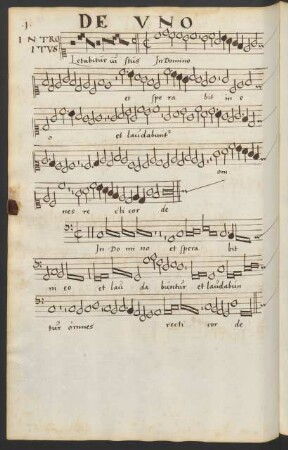 DE VNO
INTRO
ITVS
Letabitur iustus In Domino
et spera bit in e
o et laudabunt
om
nes re cti cor de
In Do mi no et spera bit
in eo et lau da buntur et laudabun
tur omnes recti cor de